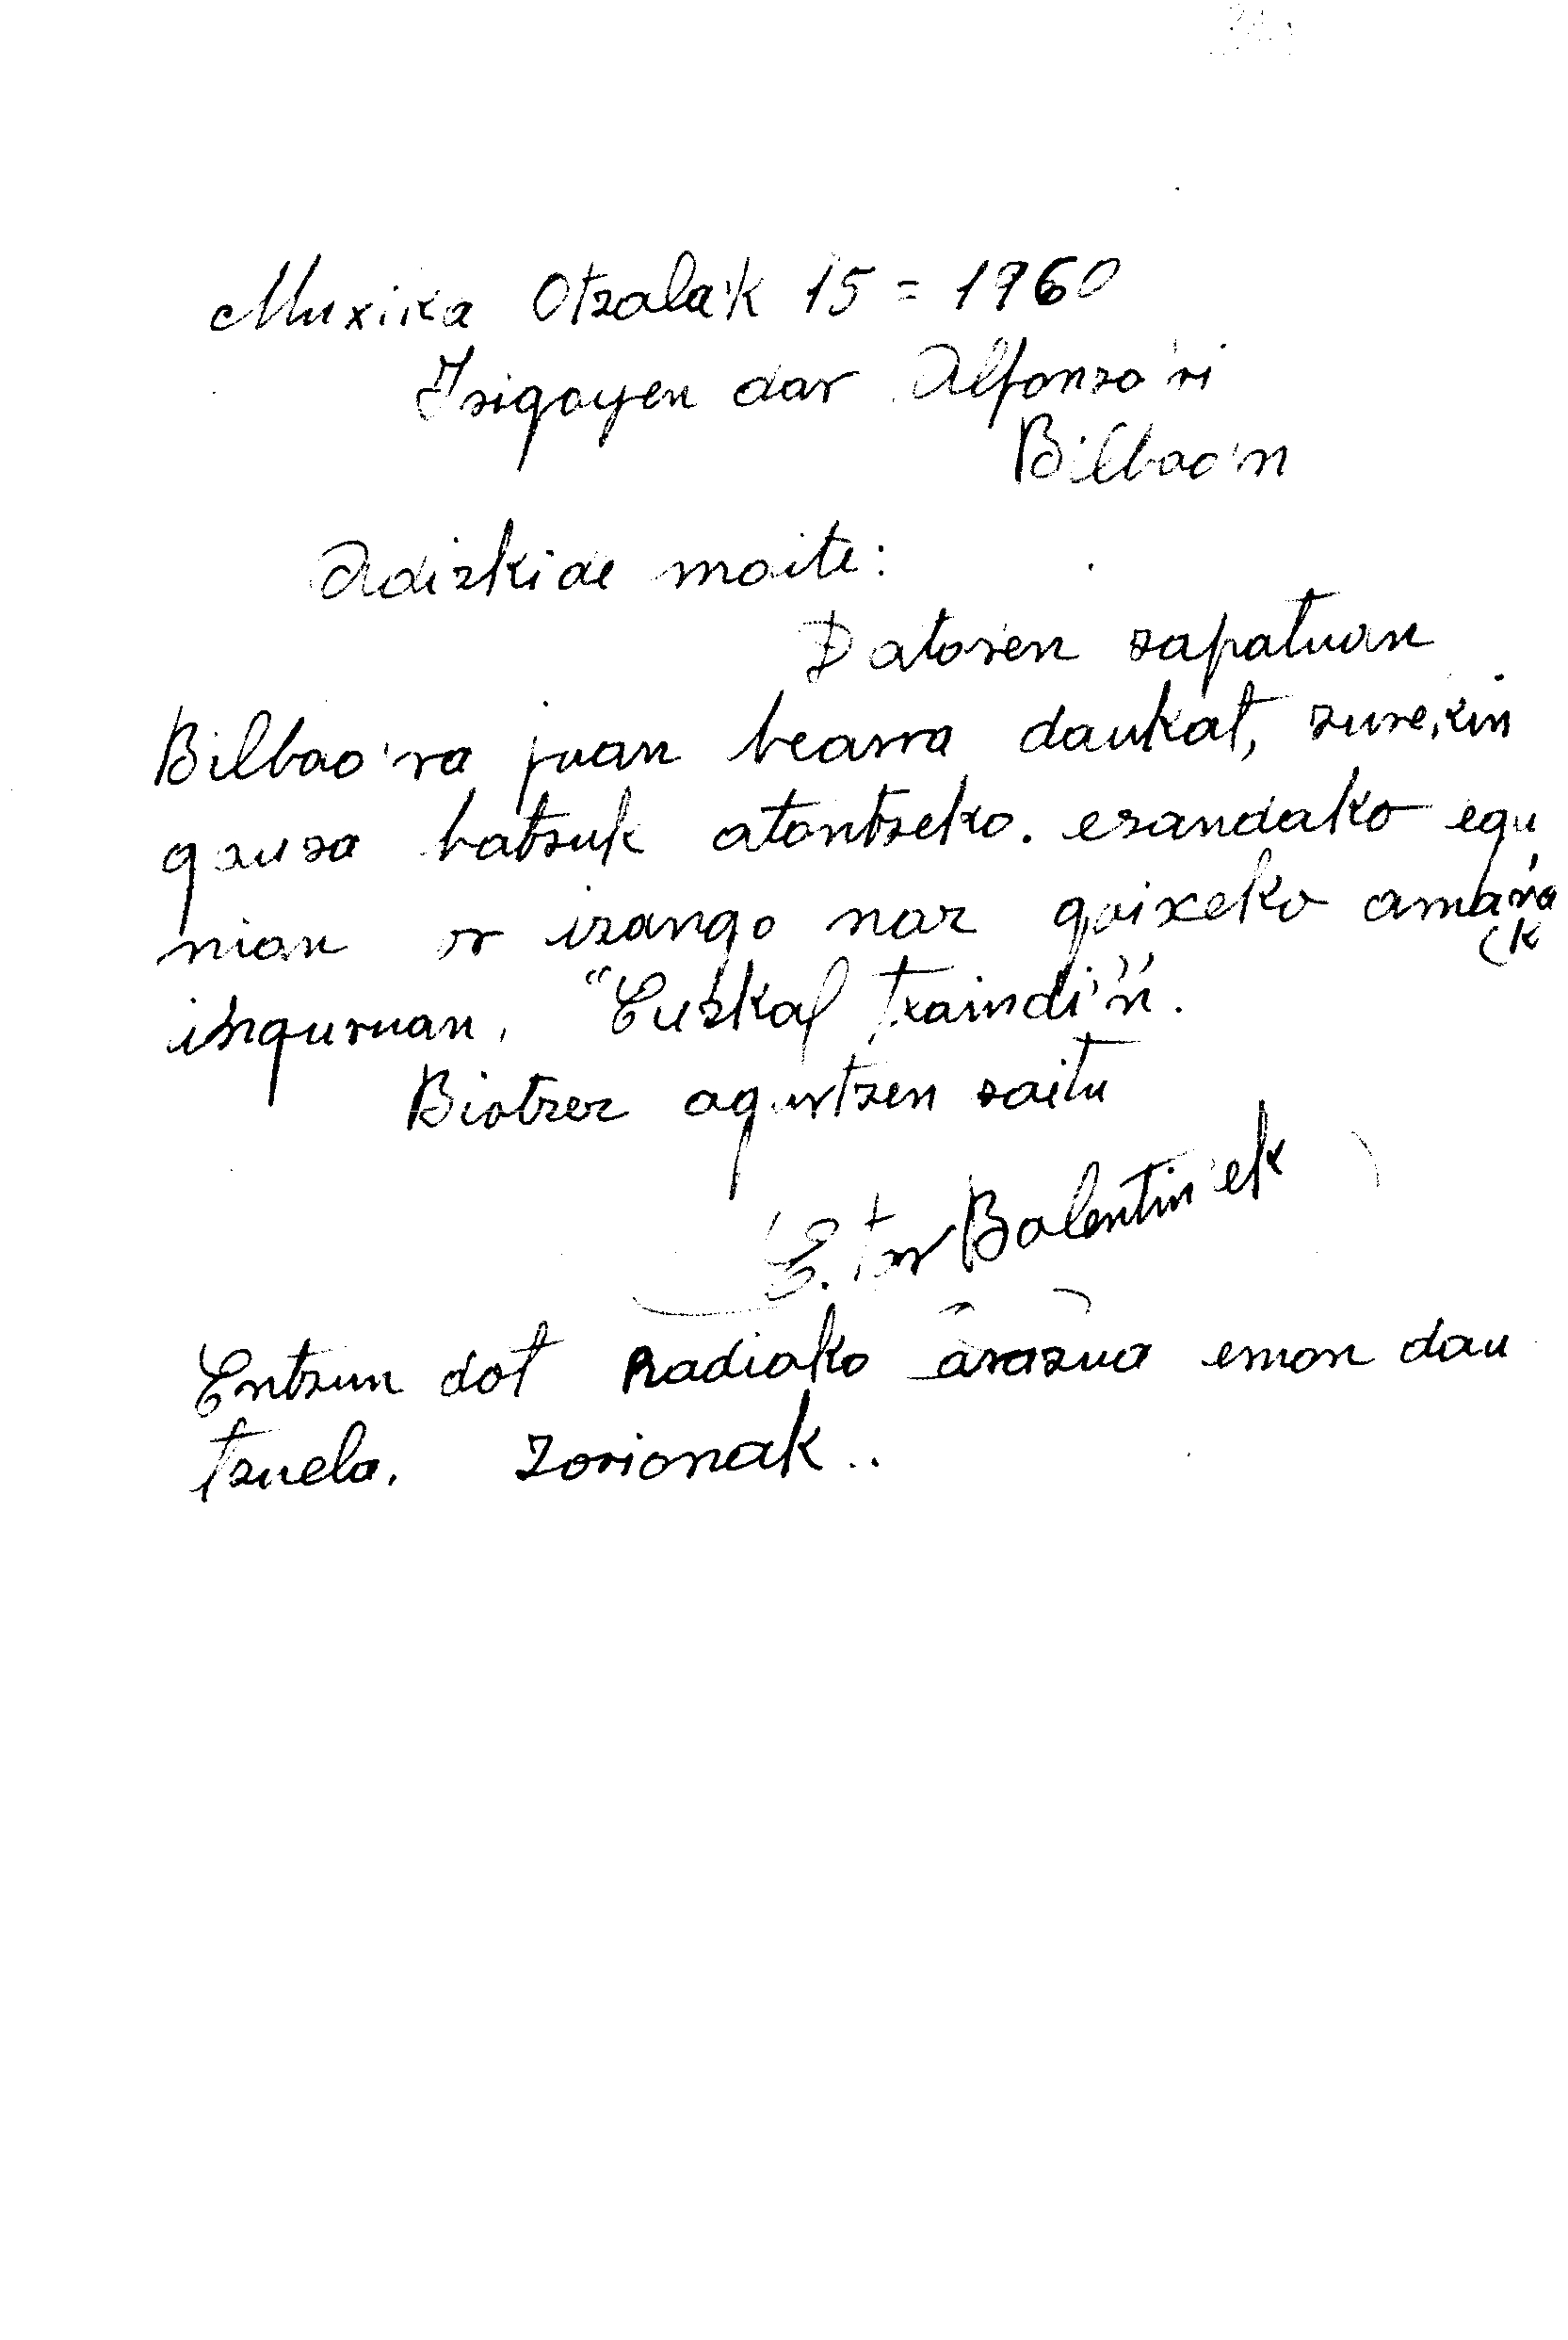 Muxika Otzalak 15 = 1960
Irigoyen dar Alfonzo'ri
Bilbao'n
Adizkide maite:
Datoŕen zapatuan
Bilbao'ra juan bearra daukat, zurekin
gauza batzuk atontzeko. esandako egu
nian or izango naz goixeko amaŕa
(k
inguruan, "Euskal Txaindi'n".
Biotzez agurtzen zaitu
E. tar Balentin'ek
Entzun dot Radiako arazua emon dau
tzuela. Zorionak..